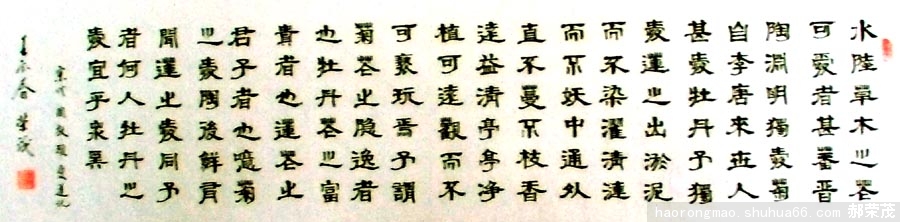 水陸草木之花
可愛者甚蕃晋
陶淵明獨愛菊
自李唐來世人
甚愛牡丹予獨
愛蓮之出淤泥
而不染濯清漣
而不妖中通外
直不蔓不枝香
遠益清亭亭净
植可遠觀而不
可褻玩焉予謂
菊花之隐逸者
也牡丹花之富
貴者也蓮花之
君子者也噫菊
之愛陶後鮮有
聞蓮之愛同予
者何人牡丹之
愛宜乎衆矣
宋代周敦頤愛蓮説
haorongmao.shuhua66.com 郝荣茂